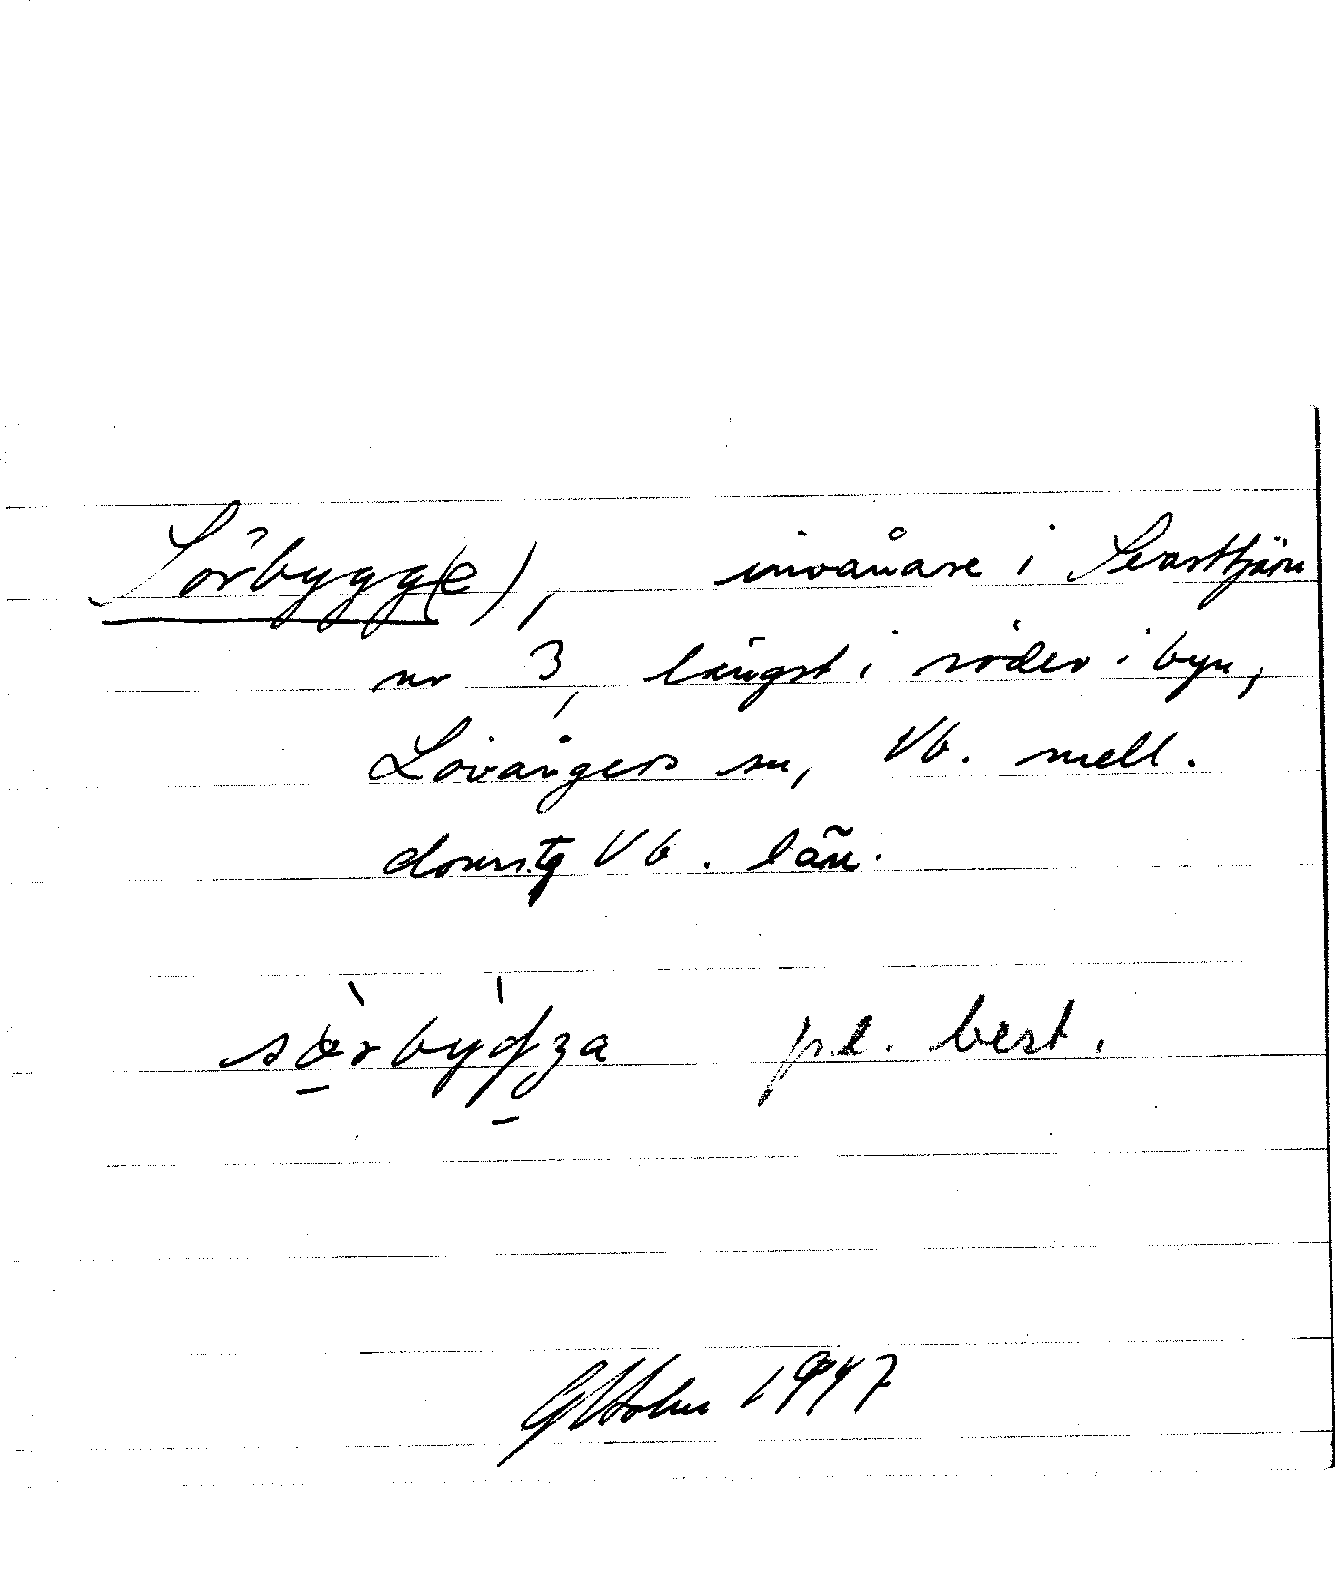 Sörbygg(e), invånare i Svarttjärn
nr 3, längst i söder i byn,
Lövångers sn, Vb. mell.
doms.tg Vb. län.
sørbyʠʒa pl. best.
1947